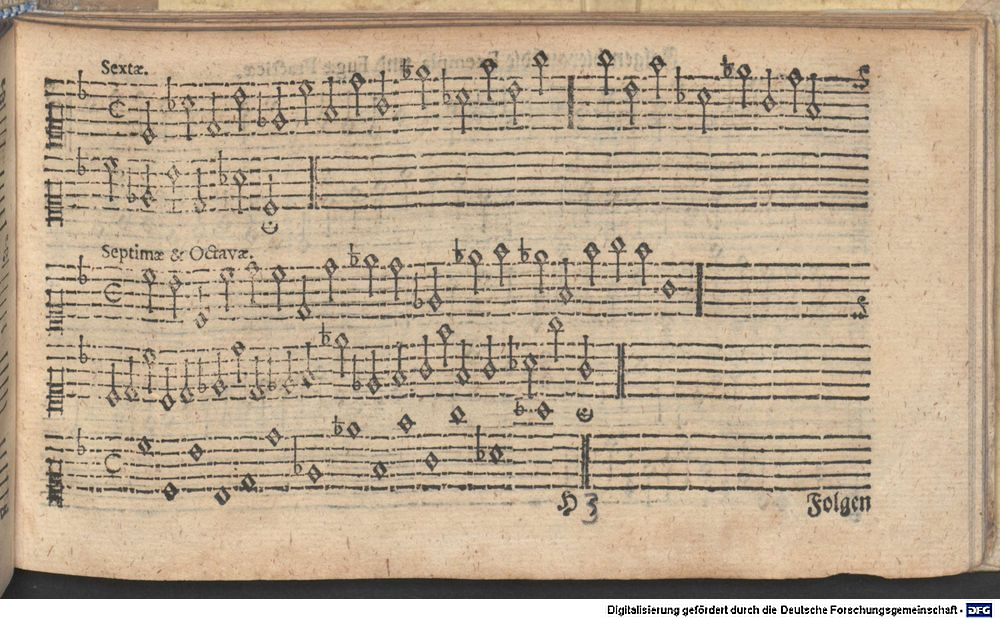 Sextæ.
Septimæ & Octavæ.
H 3
Folgen
Digitalisierung gefördert durch die Deutsche Forschungsgemeinschaft - DFG